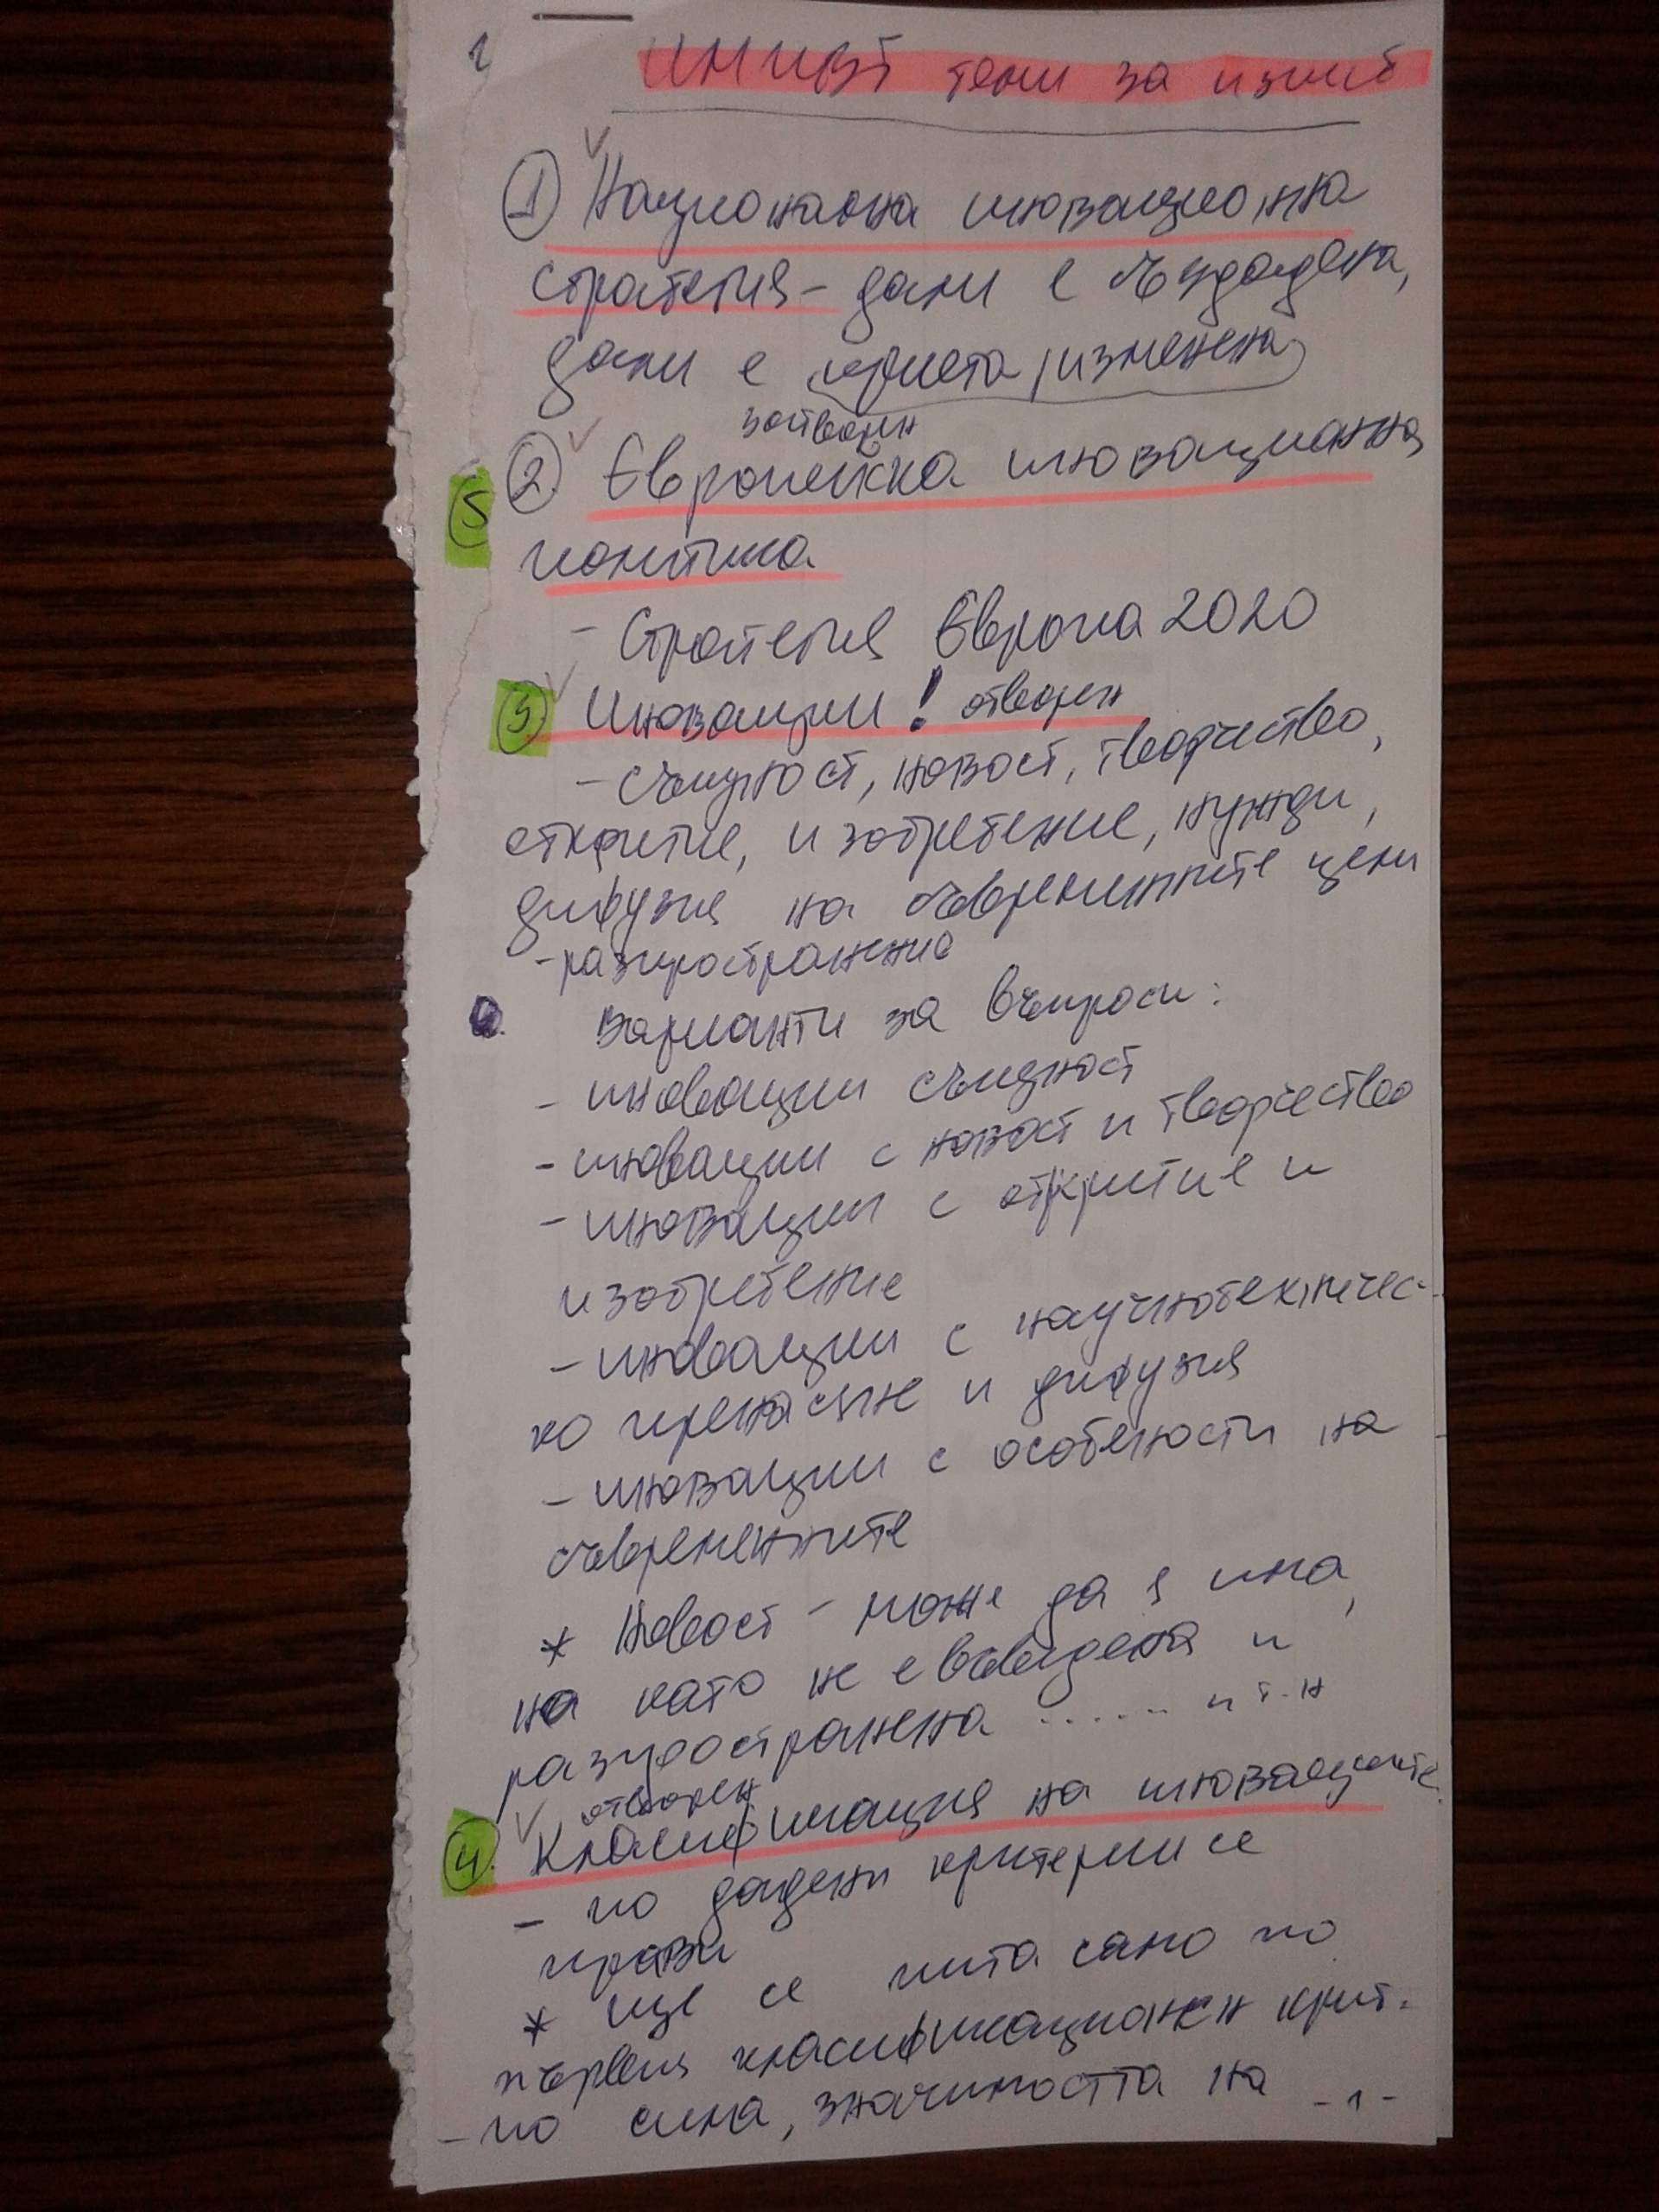 теми за изпит
① Национална иновационна
стратегия – дали е създадена,
дали е приета / изменена
затворен
② Европейска иновационна
5
политика
- Стратегия Европа 2020
③ Иновации! отворен
- същност, новост, творчество,
откритие, изобретение, нужди,
дифузия на съвременните цели
- разпространение
Варианти за въпроси:
- иновации същност
- иновации с новост и творчество
- иновации с откритие и
изобретение
- иновации с научнотехничес-
ко пренасяне и дифузия
- иновации с особености на
съвременните
* Новост - може да я има,
на като не е въведена и
разпространена ...... и т.н
отворен
④. Класификация на иновациите.
- по дадени критерии се
прави
* ще се пита само по
първия класификационен крит.
- по сила, значимостта на -"-